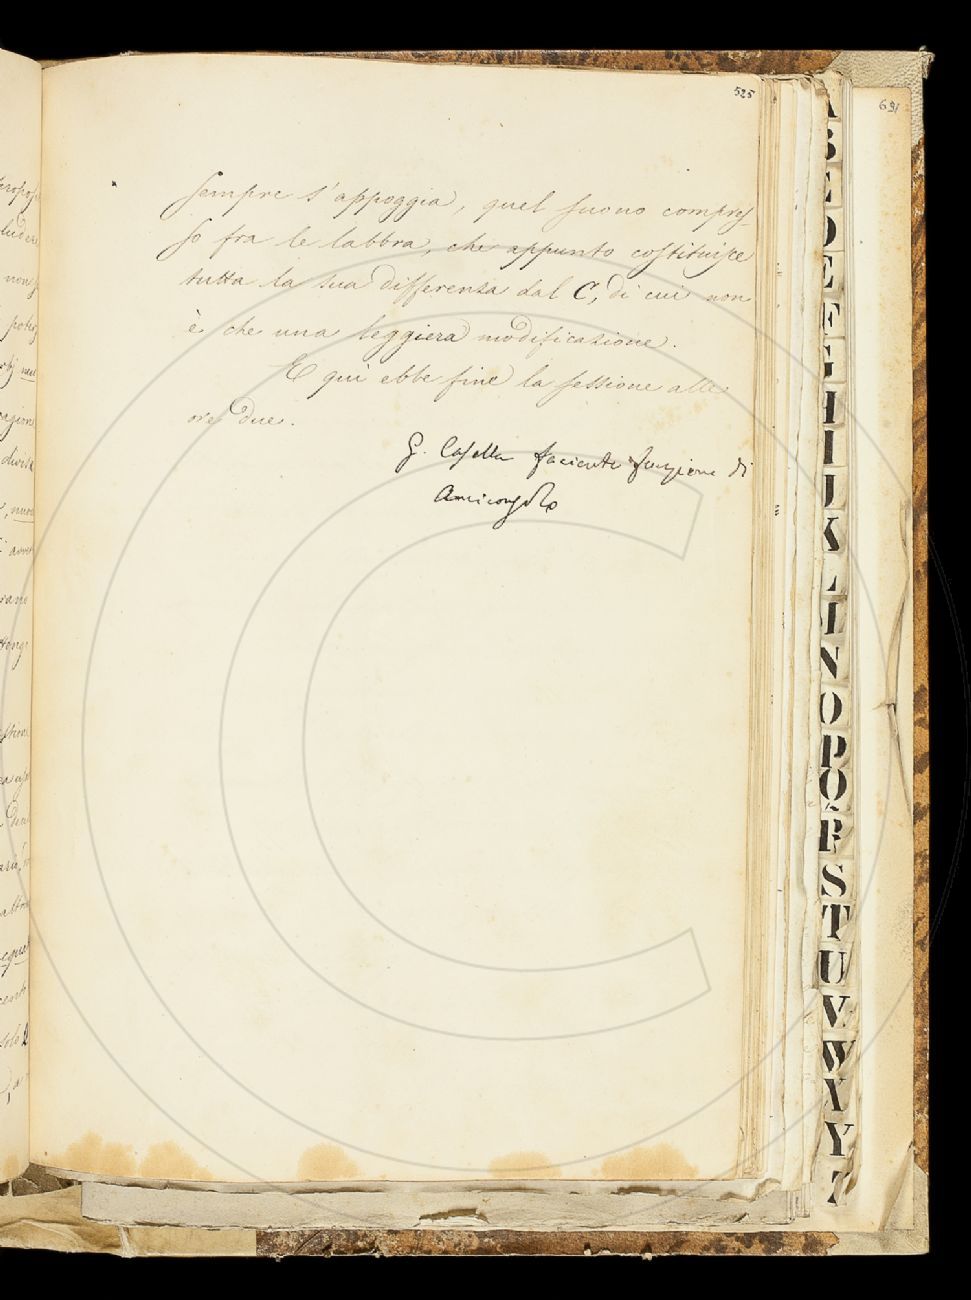 525
sempre s'appoggia, quel suono compres-
so fra le labbra, che appunto costituisce
tutta la sua differenza dal C, di cui non
è che una leggiera modificazione.
E quì ebbe fine la sessione alle
ore due.
G. Casella facente funzione di
Arciconsolo
691
A
B
C
D
E
F
G
H
I
J
K
L
M
N
O
P
Q
R
S
T
U
V
W
X
Y
Z